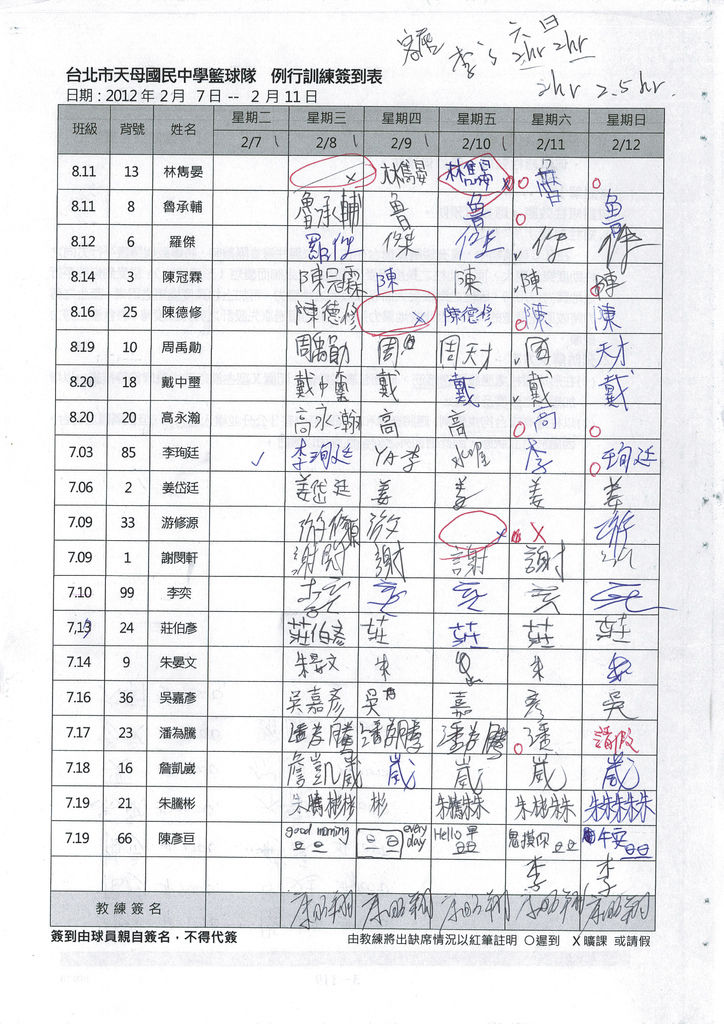 客廳 李's 六 日
2hr 2hr
2hr 2.5 hr.
台北市天母國民中學籃球隊 例行訓練簽到表
日期：2012 年 2 月 7 日 -- 2 月 11 日
班級 背號 姓名 星期二 星期三 星期四 星期五 星期六 星期日
2/7 2/8 2/9 2/10 2/11 2/12
8.11 13 林雋晏 X 林雋晏 林雋晏 X
8.11 8 魯承輔 魯承輔 魯 魯 魯
8.12 6 羅傑 羅傑 傑 傑 傑 傑
8.14 3 陳冠霖 陳冠霖 陳 陳 陳 陳
8.16 25 陳德修 陳德修 X 陳德修 陳 陳
8.19 10 周禹勛 周禹勛 周 周天才 天才
8.20 18 戴中璽 戴中璽 戴 戴 戴 戴
8.20 20 高永瀚 高永瀚 高 高 高
7.03 85 李珣廷 ✓ 李珣廷 YA李 李 珣廷
7.06 2 姜岱廷 姜岱廷 姜 姜 姜 姜
7.09 33 游修源 游修源 X X
7.09 1 謝閔軒 謝 謝 謝
7.10 99 李奕
7.13 24 莊伯彥 莊伯彥 莊 莊 莊 莊
7.14 9 朱晏文 朱晏文 朱 朱
7.16 36 吳嘉彥 吳嘉彥 吳 嘉 彥 吳
7.17 23 潘為騰 潘為騰 潘為騰 潘為騰 潘 請假
7.18 16 詹凱崴 詹凱崴 崴 崴 崴 崴
7.19 21 朱騰彬 朱騰彬 彬
7.19 66 陳彥亘 good morning every day Hello 早 鬼摸你 午安
李 李
教練簽名
簽到由球員親自簽名，不得代簽 由教練將出缺席情況以紅筆註明 O遲到 X曠課 或請假